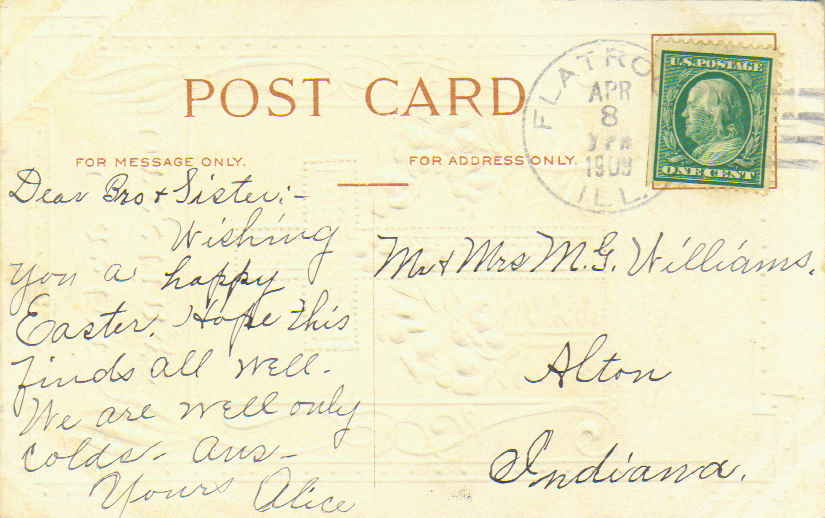 POST CARD
FOR MESSAGE ONLY.
FOR ADDRESS ONLY.
FLATRO
APR
8
1909
ILL.
U.S. POSTAGE
ONE CENT
Dear Bro & Sister:-
Wishing
you a happy
Easter. Hope this
finds all well.
We are well only
colds - Ans -
Yours Alice
Mr & Mrs M.G. Williams.
Alton
Indiana.